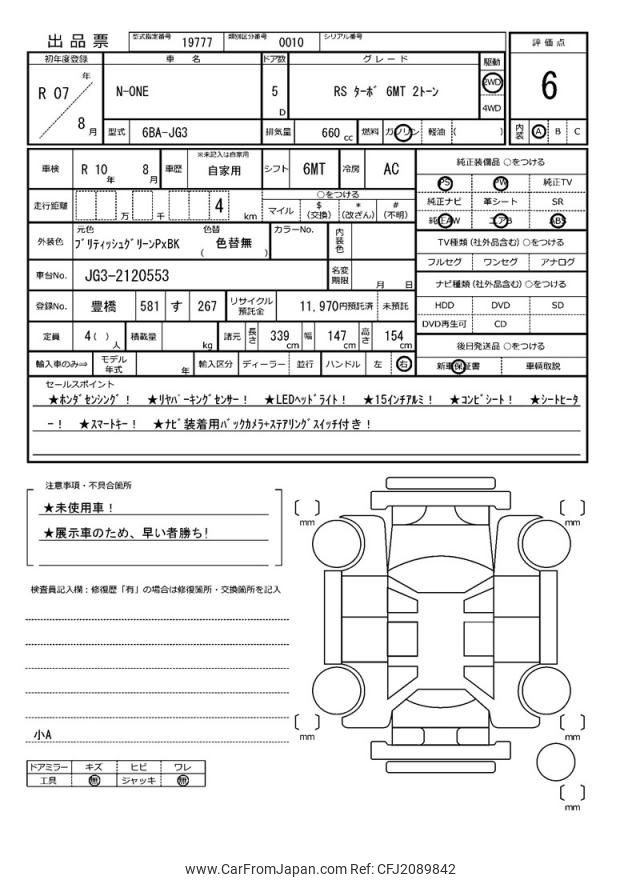 出品票 型式指定番号 19777 類別区分番号 0010 シリアル番号
評価点
6
内装 A B C
初年度登録 車名 ドア数 グレード 駆動
R 07 年 8 月
N-ONE 5 D RS ﾀｰﾎﾞ 6MT 2ﾄｰﾝ 2WD
4WD
型式 6BA-JG3 排気量 660 cc 燃料 ガソリン 軽油 ( )
車検 R 10 年 8 月 車歴 ※未記入は自家用 自家用 シフト 6MT 冷房 AC
走行距離 万 千 4 km
○をつける
マイル $ (交換) * (改ざん) # (不明)
外装色 元色 ﾌﾞﾘﾃｨｯｼｭｸﾞﾘｰﾝPxBK 色替 ( 色替無 ) カラーNo. 内装色
車台No. JG3-2120553 名変期限 月 日
登録No. 豊橋 581 す 267 リサイクル預託金 11,970円預託済 未預託
定員 4( ) 人 積載量 kg 諸元 長さ 339 cm 幅 147 cm 高さ 154 cm
輸入車のみ⇒ モデル年式 年 輸入区分 ディーラー 並行 ハンドル 左 右
純正装備品 ○をつける
PS PW 純正TV
純正ナビ 革シート SR
純正AW エアB ABS
TV種類 (社外品含む) ○をつける
フルセグ ワンセグ アナログ
ナビ種類 (社外品含む) ○をつける
HDD DVD SD
DVD再生可 CD
後日発送品 ○をつける
新車保証書 車輌取説
セールスポイント
★ﾎﾝﾀﾞｾﾝｼﾝｸﾞ！ ★ﾘﾔﾊﾟｰｷﾝｸﾞｾﾝｻｰ！ ★LEDﾍｯﾄﾞﾗｲﾄ！ ★15ｲﾝﾁｱﾙﾐ！ ★ｺﾝﾋﾞｼｰﾄ！ ★ｼｰﾄﾋｰﾀ
ｰ！ ★ｽﾏｰﾄｷｰ！ ★ﾅﾋﾞ装着用ﾊﾞｯｸｶﾒﾗ+ｽﾃｱﾘﾝｸﾞｽｲｯﾁ付き！
注意事項・不具合箇所
★未使用車！
★展示車のため、早い者勝ち!
検査員記入欄：修復歴「有」の場合は修復箇所・交換箇所を記入
小A
ドアミラー キズ ヒビ ワレ
工具 無 ジャッキ 無
mm
mm
mm
mm
mm
www.CarFromJapan.com Ref: CFJ2089842